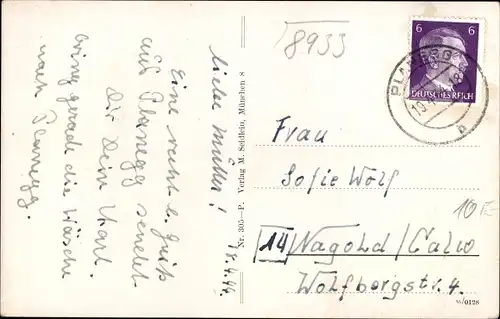 8933
18.4.44.
Liebe Mutter!
Eine recht l. Gruß
aus Planegg sendet
Dir Dein Karl.
bring grade die Wäsche
nach Planegg.
Nr. 305—P. Verlag M. Seidlein, München 8
6 6
DEUTSCHES REICH
PLANEGG
b
Frau
Sofie Wolf
(14) Nagold/Calw
Wolfbergstr. 4.
10
0128